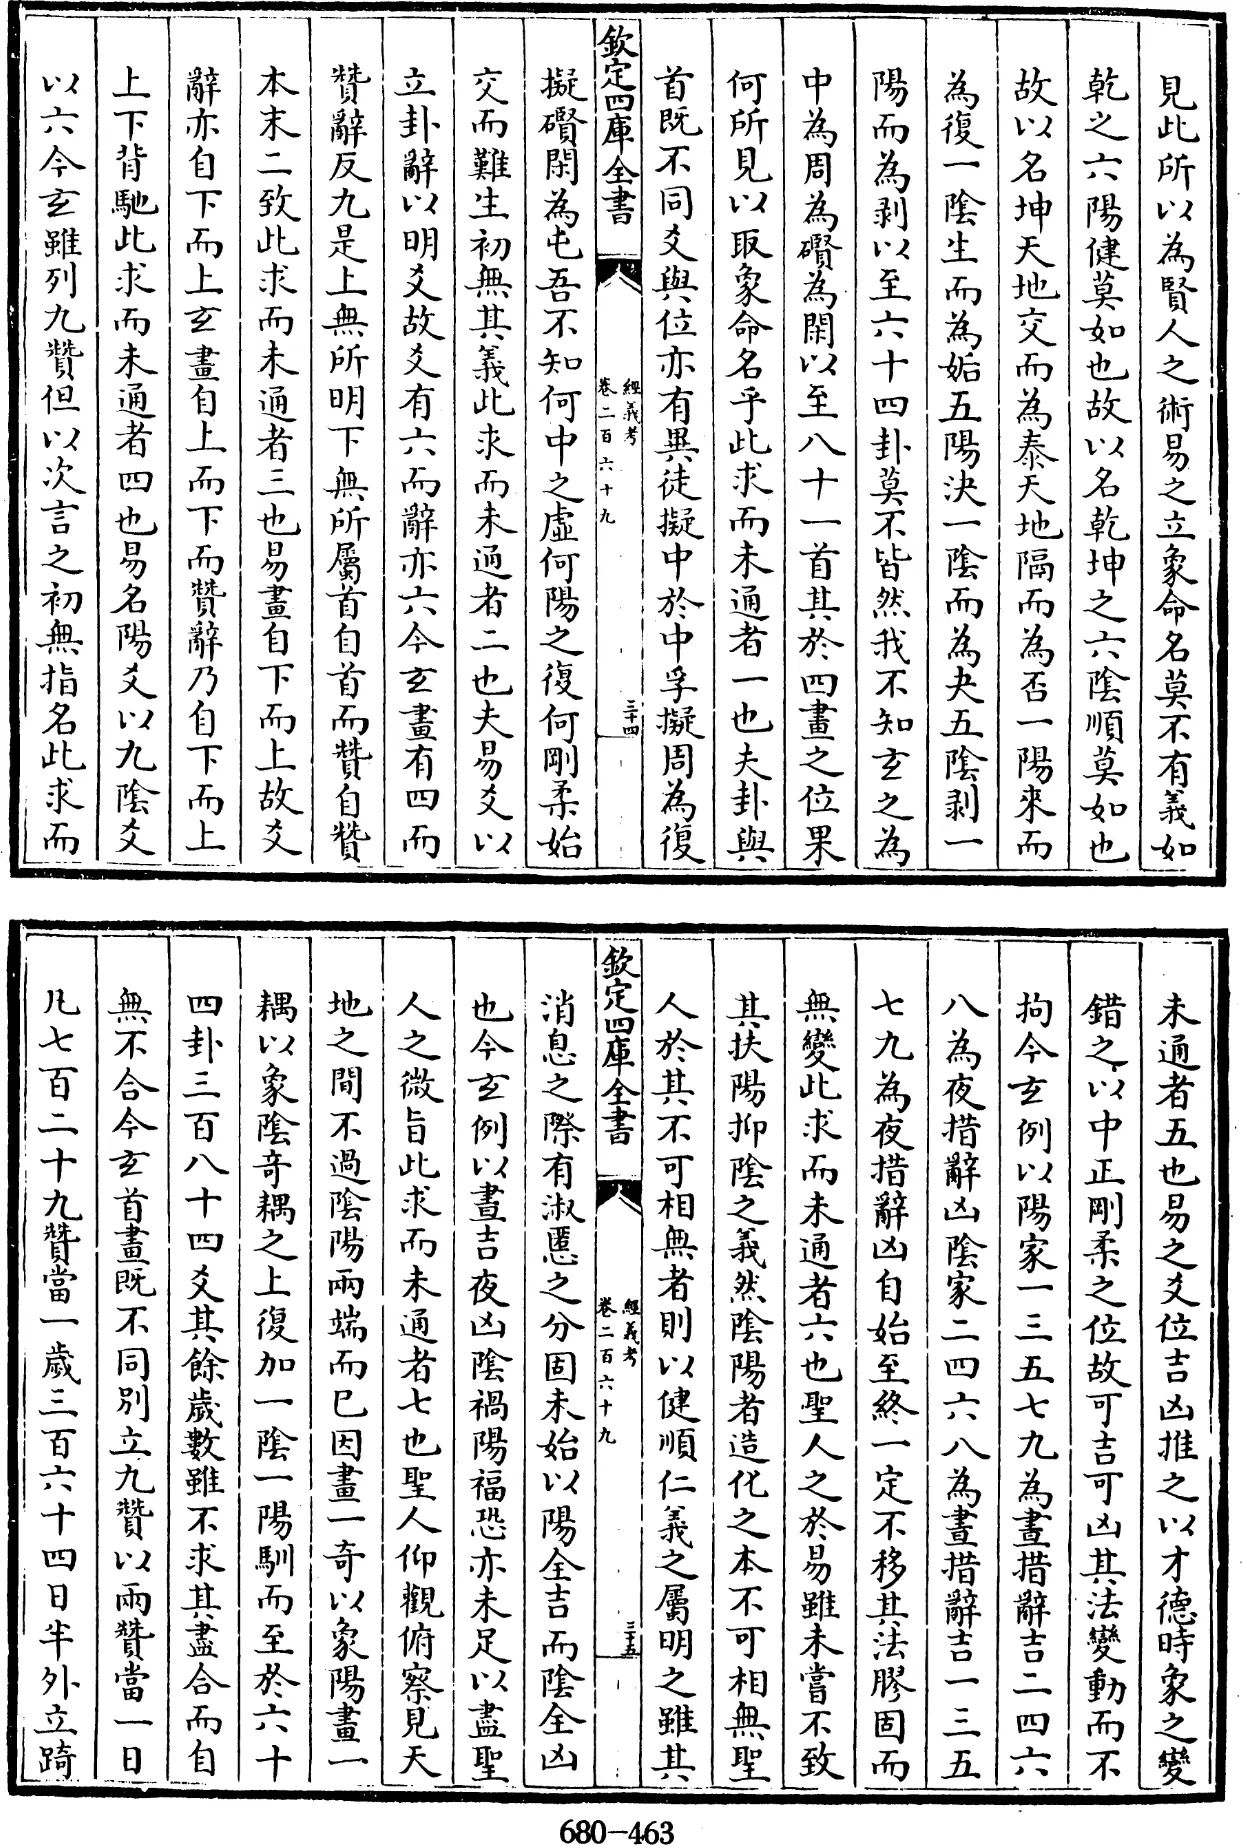 見此所以為賢人之術易之立象命名莫不有義如
乾之六陽健莫如也故以名乾坤之六陰順莫如也
故以名坤天地交而為泰天地隔而為否一陽來而
為復一陰生而為姤五陽決一陰而為夬五陰剥一
陽而為剥以至六十四卦莫不皆然我不知玄之為
中為周為礥為閑以至八十一首其於四畫之位果
何所見以取象命名乎此求而未通者一也夫卦與
首既不同爻與位亦有異徒擬中於中孚擬周為復
欽定四庫全書
經義考
卷二百六十九
三十四
擬礥閑為屯吾不知何中之虛何陽之復何剛柔始
交而難生初無其義此求而未通者二也夫易爻以
立卦辭以明爻故爻有六而辭亦六今玄畫有四而
贊辭反九是上無所明下無所屬首自首而贊自贊
本末二致此求而未通者三也易畫自下而上故爻
辭亦自下而上玄畫自上而下而贊辭乃自下而上
上下背馳此求而未通者四也易名陽爻以九陰爻
以六今玄雖列九贊但以次言之初無指名此求而
未通者五也易之爻位吉凶推之以才德時象之變
錯之以中正剛柔之位故可吉可凶其法變動而不
拘今玄例以陽家一三五七九為晝措辭吉二四六
八為夜措辭凶陰家二四六八為晝措辭吉一三五
七九為夜措辭凶自始至終一定不移其法膠固而
無變此求而未通者六也聖人之於易雖未嘗不致
其扶陽抑陰之義然陰陽者造化之本不可相無聖
人於其不可相無者則以健順仁義之屬明之雖其
欽定四庫全書
經義考
卷二百六十九
三十五
消息之際有淑慝之分固未始以陽全吉而陰全凶
也今玄例以晝吉夜凶陰禍陽福恐亦未足以盡聖
人之微旨此求而未通者七也聖人仰觀俯察見天
地之間不過陰陽兩端而已因畫一奇以象陽畫一
耦以象陰奇耦之上復加一陰一陽馴而至於六十
四卦三百八十四爻其餘歲數雖不求其盡合而自
無不合今玄首畫既不同別立九贊以兩贊當一日
凡七百二十九贊當一歲三百六十四日半外立踦
680-463